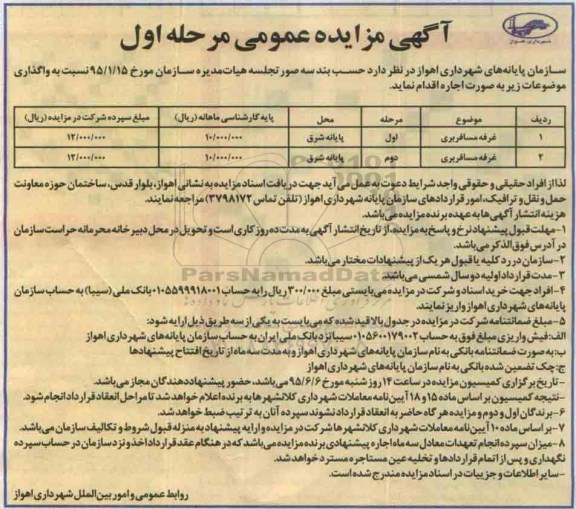 آگهی مزایده عمومی مرحله اول
شهرداری اهواز
سازمان پایانه‌های شهرداری اهواز در نظر دارد حسب بند سه صورتجلسه هیات‌مدیره سازمان مورخ ۹۵/۱/۱۵ نسبت به واگذاری
موضوعات زیر به صورت اجاره اقدام نماید.
ردیف موضوع مرحله محل پایه کارشناسی ماهانه (ریال) مبلغ سپرده شرکت در مزایده (ریال)
۱ غرفه مسافربری اول پایانه شرق ۱۰/۰۰۰/۰۰۰ ۱۲/۰۰۰/۰۰۰
۲ غرفه مسافربری دوم پایانه شرق ۱۰/۰۰۰/۰۰۰ ۱۲/۰۰۰/۰۰۰
لذا از افراد حقیقی و حقوقی واجد شرایط دعوت به عمل می آید جهت دریافت اسناد مزایده به نشانی اهواز، بلوار قدس، ساختمان حوزه معاونت
حمل و نقل و ترافیک، امور قراردادهای سازمان پایانه شهرداری اهواز (تلفن تماس ۳۷۹۸۱۷۲) مراجعه نمایند.
هزینه انتشار آگهی ها به عهده برنده مزایده می‌باشد.
۱-مهلت قبول پیشنهاد نرخ و پاسخ به مزایده، از تاریخ انتشار آگهی به مدت ده روز کاری است و تحویل در محل دبیرخانه محرمانه حراست سازمان
در آدرس فوق الذکر می‌باشد.
۲-سازمان در رد کلیه یا قبول هر یک از پیشنهادات مختار می‌باشد.
ParsNamadData
۳-مدت قرارداد اولیه دو سال شمسی می‌باشد.
۴-افراد جهت خرید اسناد و شرکت در مزایده می‌بایستی مبلغ ۳۰۰/۰۰۰ ریال را به حساب ۰۱۰۵۵۹۹۹۱۸۰۰۱ بانک ملی (سیبا) به حساب سازمان
پایانه‌های شهرداری اهواز واریز نمایند.
۵-مبلغ ضمانتنامه شرکت در مزایده در جدول بالا قید شده که می بایست به یکی از سه طریق ذیل ارایه شود:
الف: فیش واریزی مبلغ فوق به حساب ۰۱۰۵۶۰۰۱۷۹۰۰۲ سیبا نزد بانک ملی ایران به حساب سازمان پایانه های شهرداری اهواز
ب: به صورت ضمانتنامه بانکی به نام سازمان پایانه‌های شهرداری اهواز و به مدت سه ماه از تاریخ افتتاح پیشنهادها
ج: چک تضمین شده بانکی به نام سازمان پایانه های شهرداری اهواز
-تاریخ برگزاری کمیسیون مزایده در ساعت ۱۴ روز شنبه مورخ ۹۵/۶/۶ می‌باشد، حضور پیشنهاد دهندگان مجاز می‌باشد.
-نتیجه کمیسیون بر اساس ماده ۱۵ و ۱۸ آیین نامه معاملات شهرداری کلانشهرها به برنده اعلام خواهد شد تا مراحل انعقاد قرارداد انجام شود.
۶-برندگان اول و دوم و مزایده هر گاه حاضر به انعقاد قرارداد نشوند سپرده آنان به ترتیب ضبط خواهد شد.
۷-بر اساس ماده ۱۰ آیین نامه معاملات شهرداری کلانشهرها شرکت در مزایده و ارایه پیشنهاد به منزله قبول شروط و تکالیف سازمان می‌باشد.
۸-میزان سپرده انجام تعهدات معادل سه ماه اجاره پیشنهادی برنده مزایده می‌باشد که در هنگام عقد قرارداد اخذ و نزد سازمان در حساب سپرده
نگهداری و پس از اتمام قراردادها و تخلیه عین مستاجره مسترد خواهد شد.
-سایر اطلاعات و جزییات در اسناد مزایده مندرج شده است.
روابط عمومی و امور بین الملل شهرداری اهواز